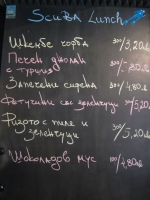 Scuba Lunch
Шкембе чорба 300/3,20лв
Печен джолан
с туршия
Запечени сирена 300/4,80лв
Фетучини със зеленчуци 5,20
Ризото с пиле и
зеленчуци 5,20лв
Шоколадов мус 100/2,80лв